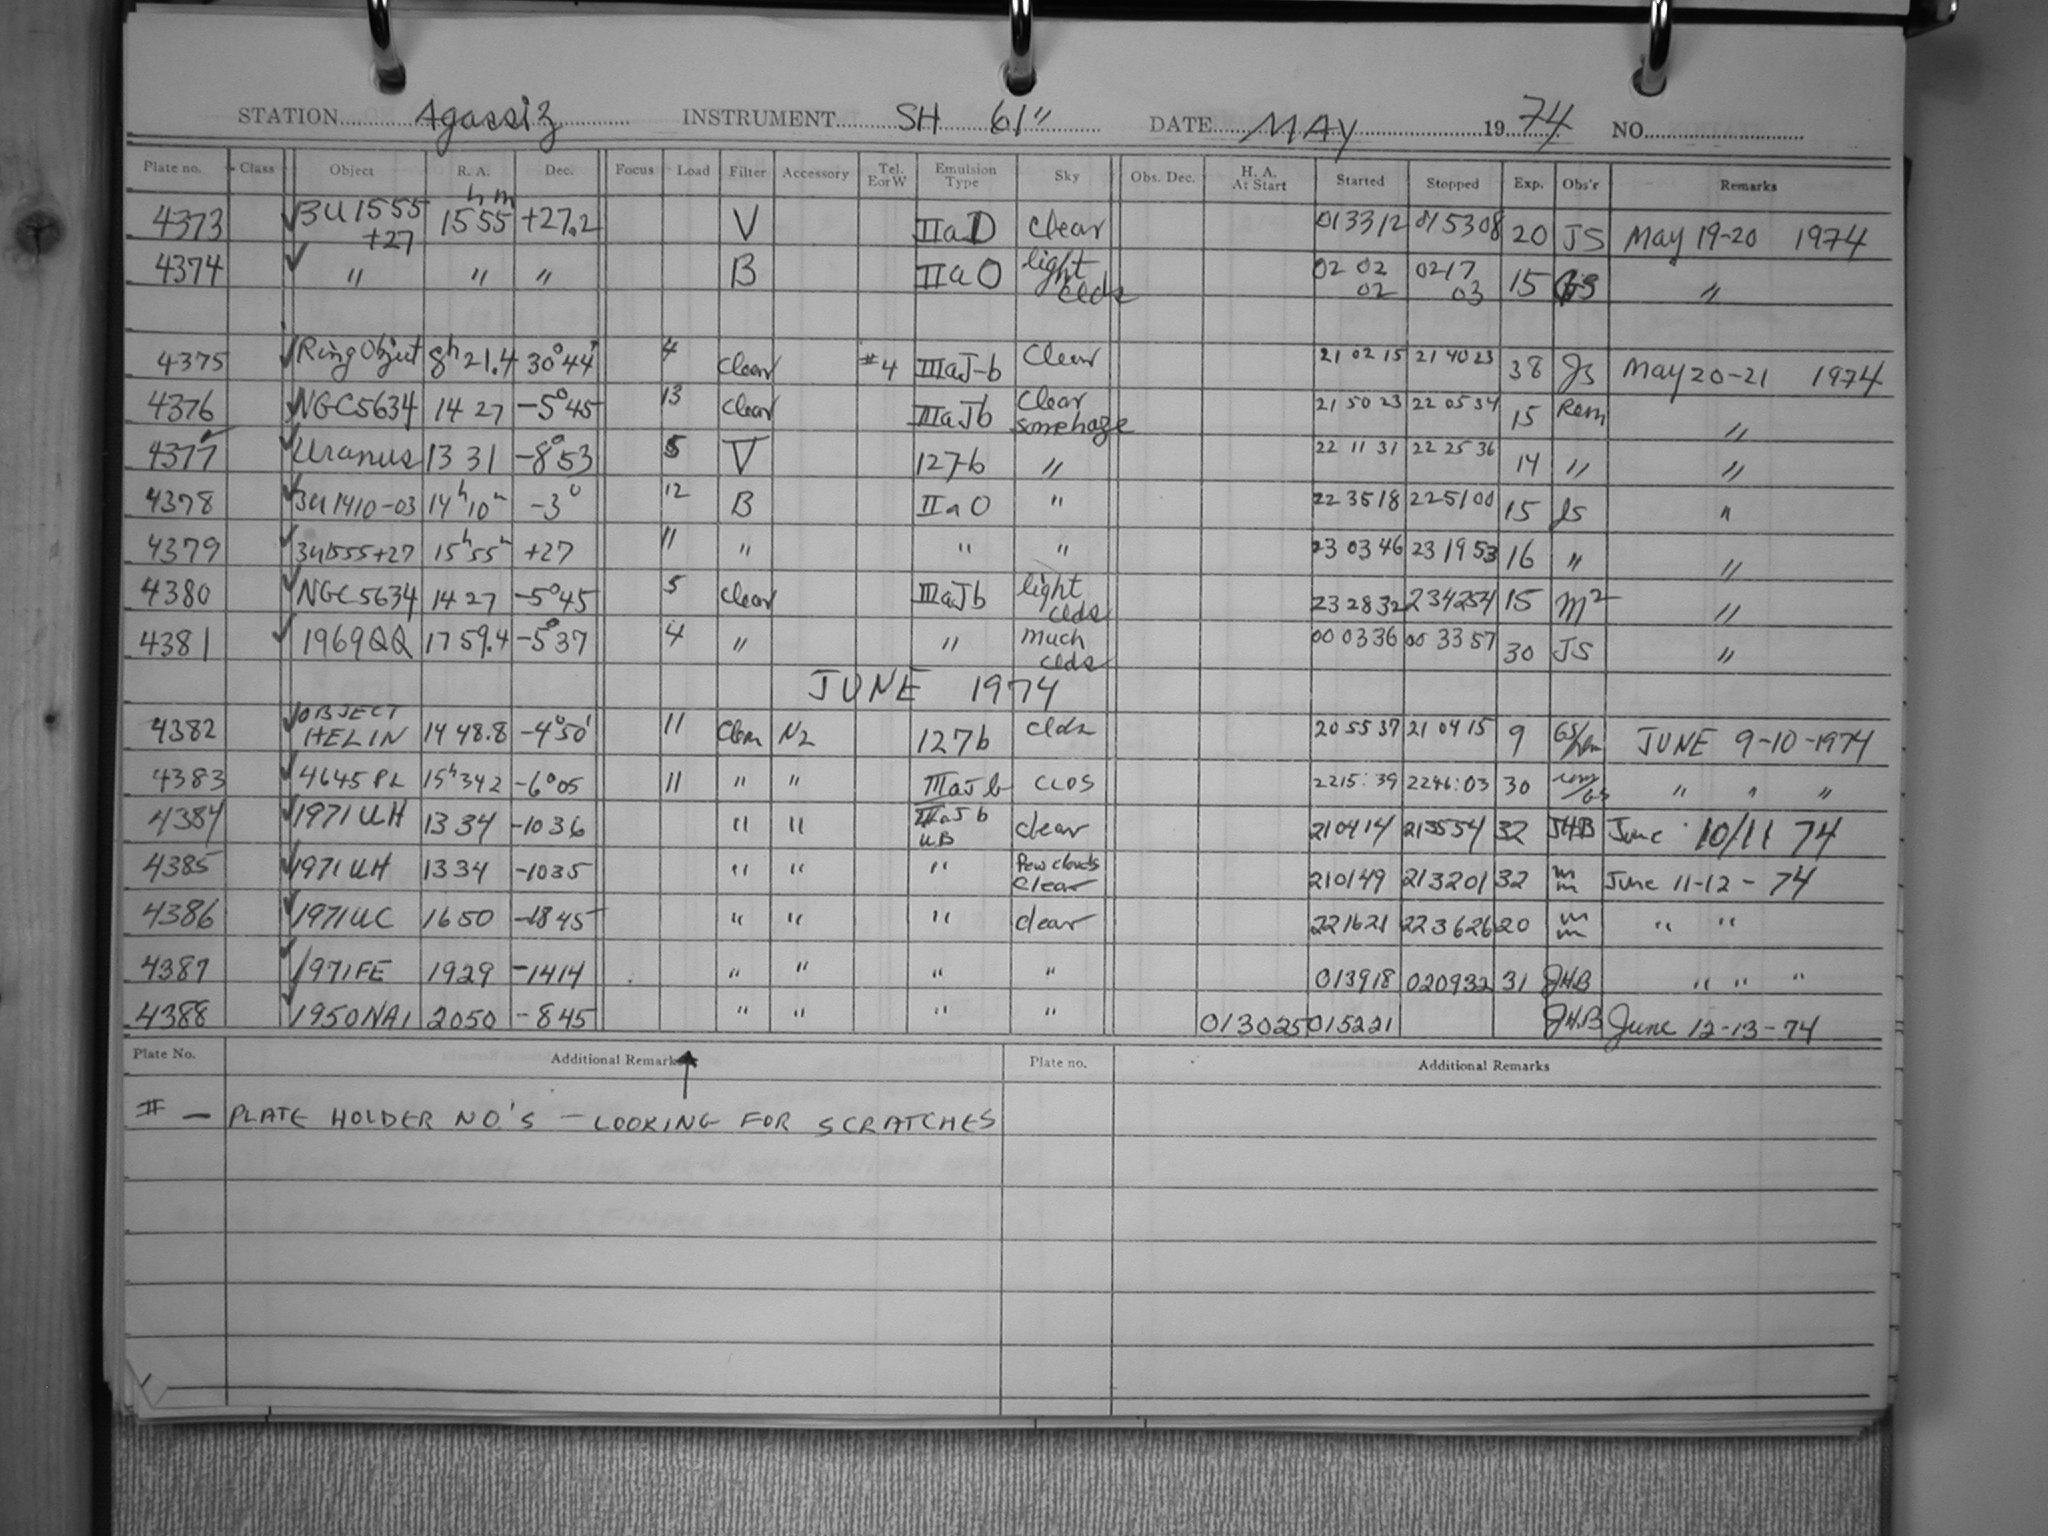 STATION Agassiz INSTRUMENT SH 61" DATE MAY 19 74 NO.
Plate no. Class Object R. A. Dec. Focus Load Filter Accessory Tel. EorW Emulsion Type Sky Obs. Dec. H. A. At Start Started Stopped Exp. Obs'r Remarks
4373 3U1555 +27 15 h 55 m +27.2 V IIaD Clear 013312 015308 20 JS May 19-20 1974
4374 " " " B IIaO light clds 02 02 02 0217 03 15 "
4375 Ring Object 8h 21.4 30°44' 4 Clear #4 IIIaJ-b Clear 21 02 15 21 40 23 38 JS May 20-21 1974
4376 NGC5634 14 27 -5°45 13 Clear IIIaJb Clear some haze 21 50 23 22 05 34 15 Rem "
4377 Uranus 13 31 -8°53 5 V 127-b " 22 11 31 22 25 36 14 " "
4378 3U1410-03 14h10m -3° 12 B IIaO " 22 35 18 22 51 00 15 JS "
4379 3U1555+27 15h55m +27 11 " " " 23 03 46 23 19 53 16 " "
4380 NGC5634 14 27 -5°45 5 Clear IIIaJb light clds 23 28 32 234254 15 M2 "
4381 1969QQ 17 59.4 -5°37 4 " " much clds 00 03 36 00 33 57 30 JS "
JUNE 1974
4382 OBJECT HELIN 14 48.8 -4°50' 11 Clear N2 127b Clds 20 55 37 21 04 15 9 JUNE 9-10-1974
4383 4645 PL 15h342 -6°05 11 " " IIIaJb CLDS 2215:39 2246:03 30 " " "
4384 1971UH 13 34 -1036 " " IIIaJb UB clear 210414 213554 32 JHB June 10/11 74
4385 1971UH 1334 -1035 " " " Few clouds Clear 210149 213201 32 June 11-12-74
4386 1971UC 1650 -1845 " " " clear 221621 223626 20 " "
4387 1971FE 1929 -1414 " " " " 013918 020932 31 JHB " " "
4388 1950NA1 2050 -845 " " " " 013025 015221 JHB June 12-13-74
Plate No. Additional Remarks Plate no. Additional Remarks
# - PLATE HOLDER NO'S - LOOKING FOR SCRATCHES